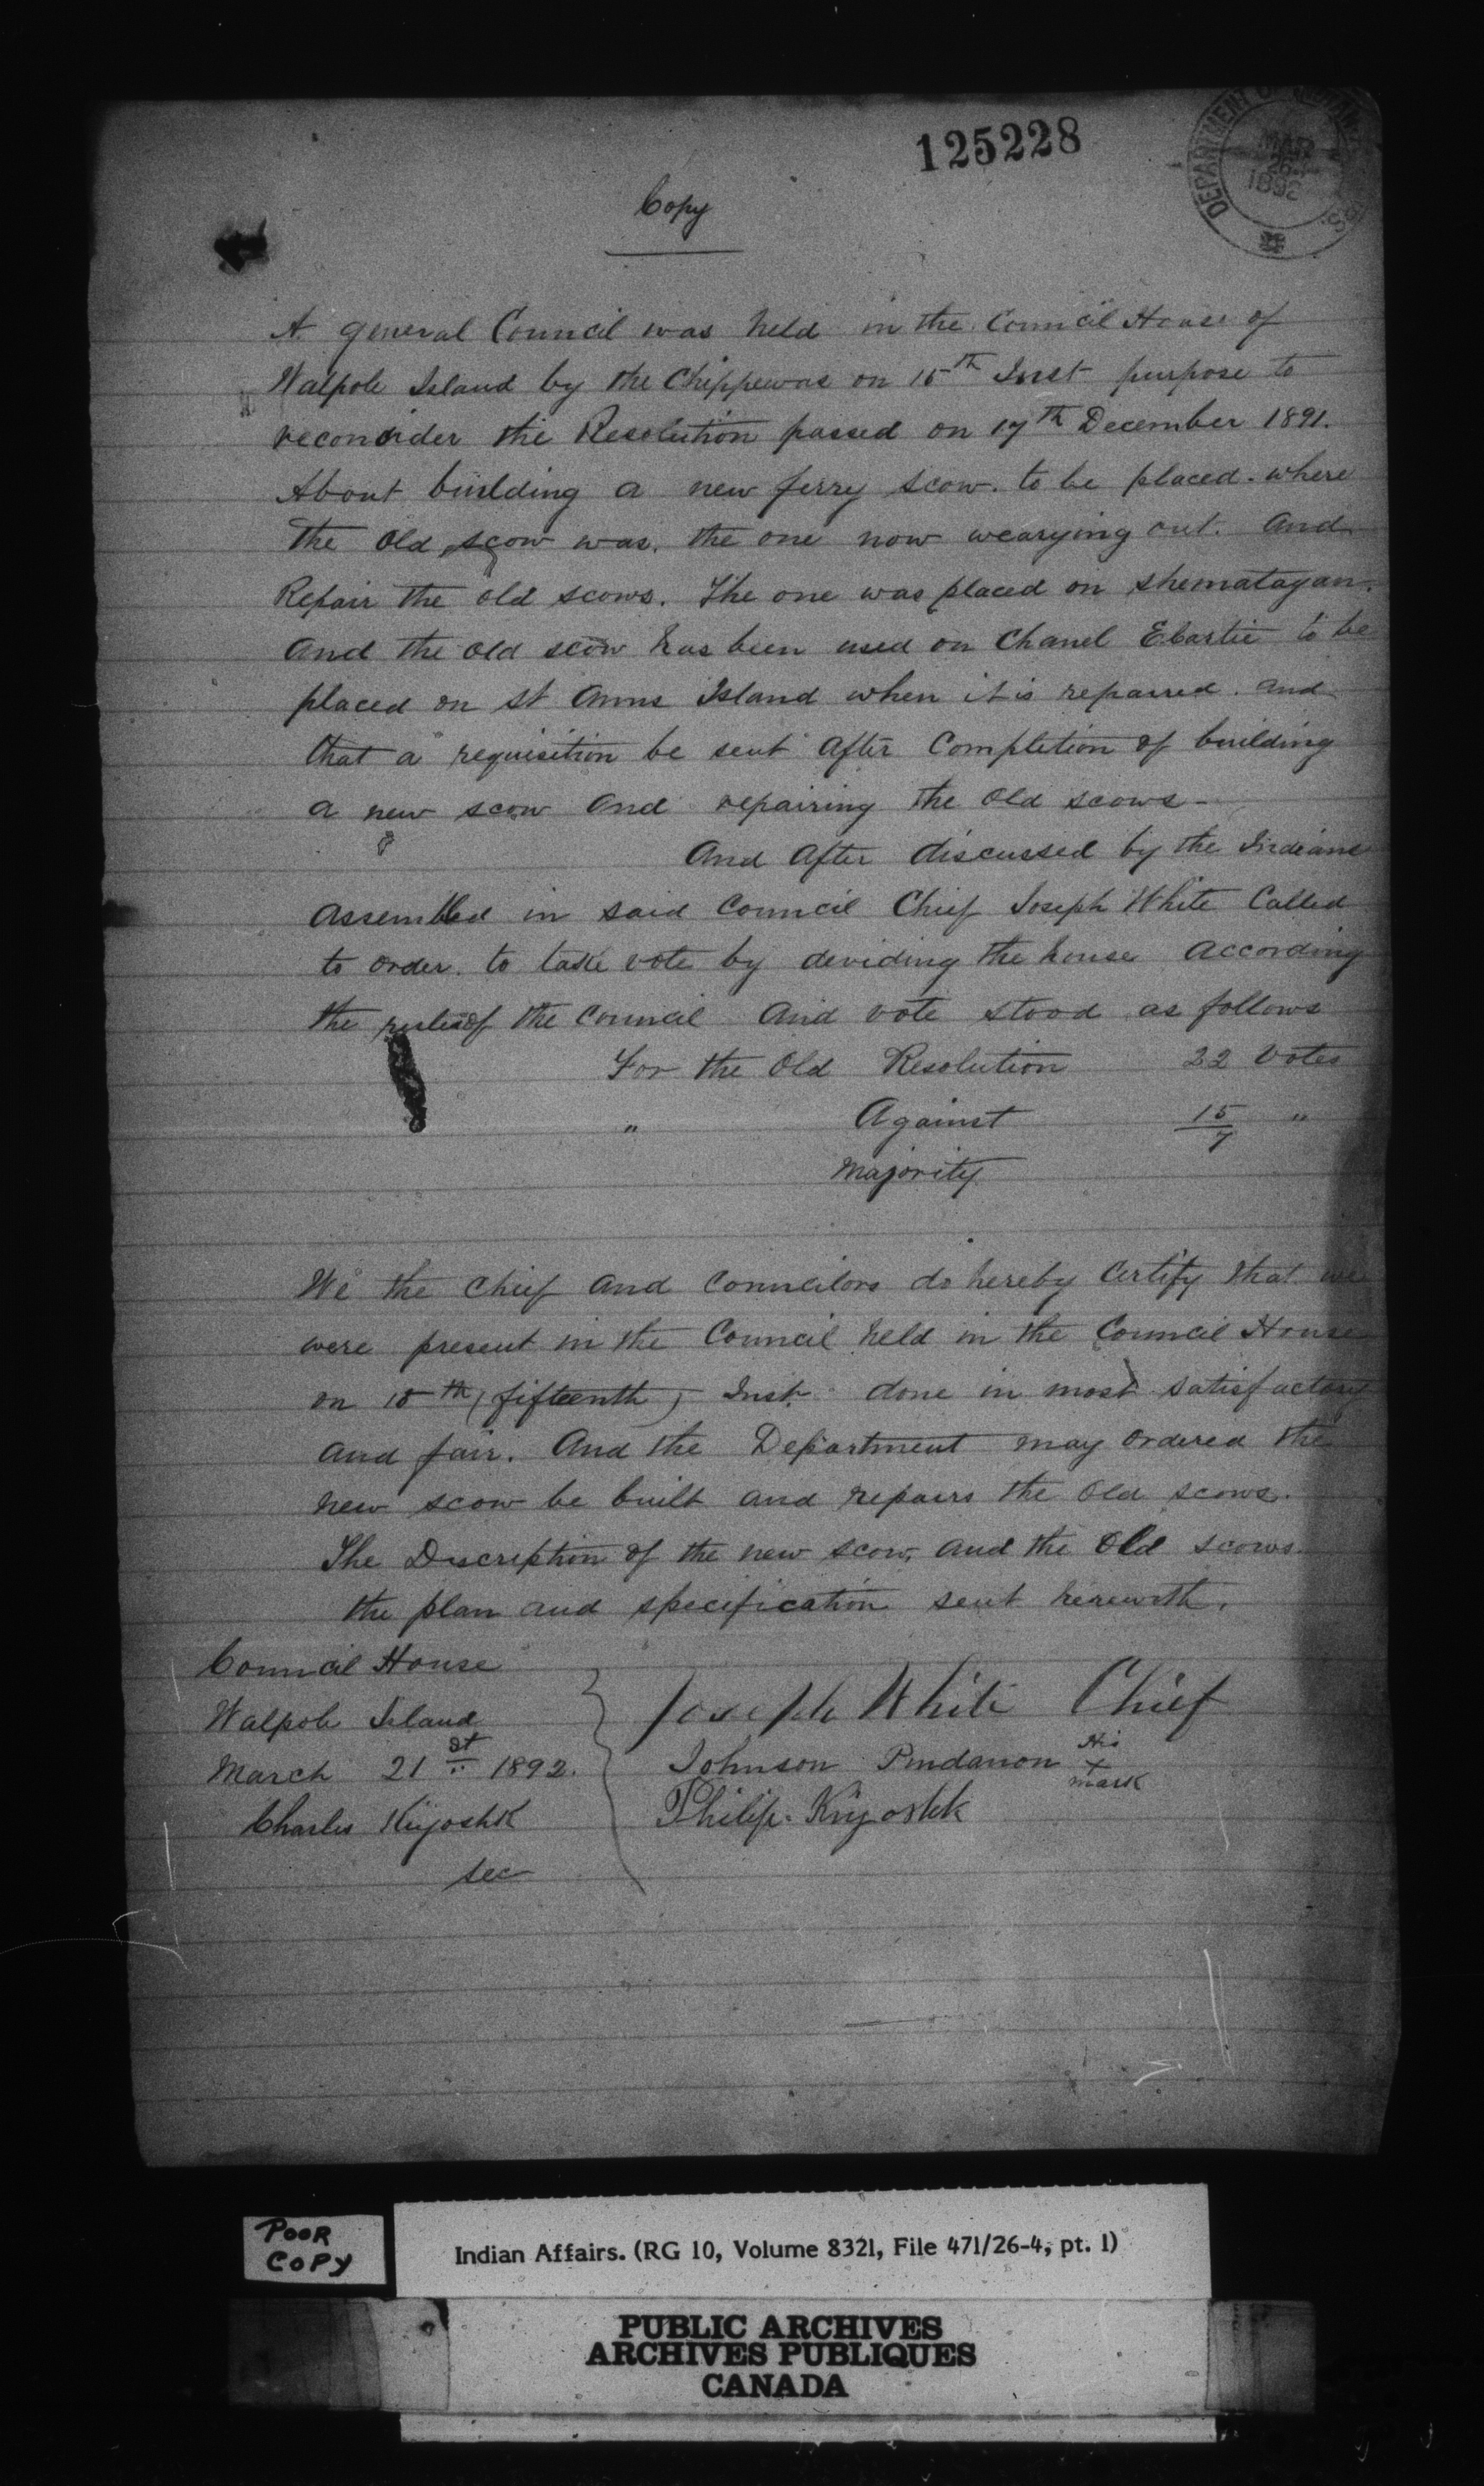 125228
DEPARTMENT
MAR 26 1892
Copy
A general Council was held in the Council House of
Walpole Island by the Chippewas on 15th Inst purpose to
reconsider the Resolution passed on 17th December 1891.
About building a new ferry scow. to be placed. where
the old scow was. the one now wearying out. And
Repair the old scows. The one was placed on shematagan.
And the old scow has been used on Chanel Ebartie to be
placed on St Anns Island when it is repaired. and
that a requisition be sent after Completion of building
a new scow and repairing the old scows -
And after discussed by the Indians
assembled in said Council Chief Joseph White Called
to order. to take vote by deviding the house according
the rules of the Council And vote stood as follows
For the Old Resolution 22 votes
" Against 15 "
7
Majority
We the Chief and Councilors do hereby Certify that we
were present in the Council held in the Council House
on 15th (fifteenth) Inst. done in most satisfactory
and fair. And the Department may ordered the
new scow be built and repairs the old scows.
The Discription of the new scow, and the Old scows.
the plan and specification sent herewith.
Council House
Walpole Island
March 21st 1892.
Charles Kiyoshk
sec
Joseph White Chief
Johnson Pindanon His
x
mark
Philip. Kiyoshk
POOR
COPY
Indian Affairs. (RG 10, Volume 8321, File 471/26-4, pt. 1)
PUBLIC ARCHIVES
ARCHIVES PUBLIQUES
CANADA